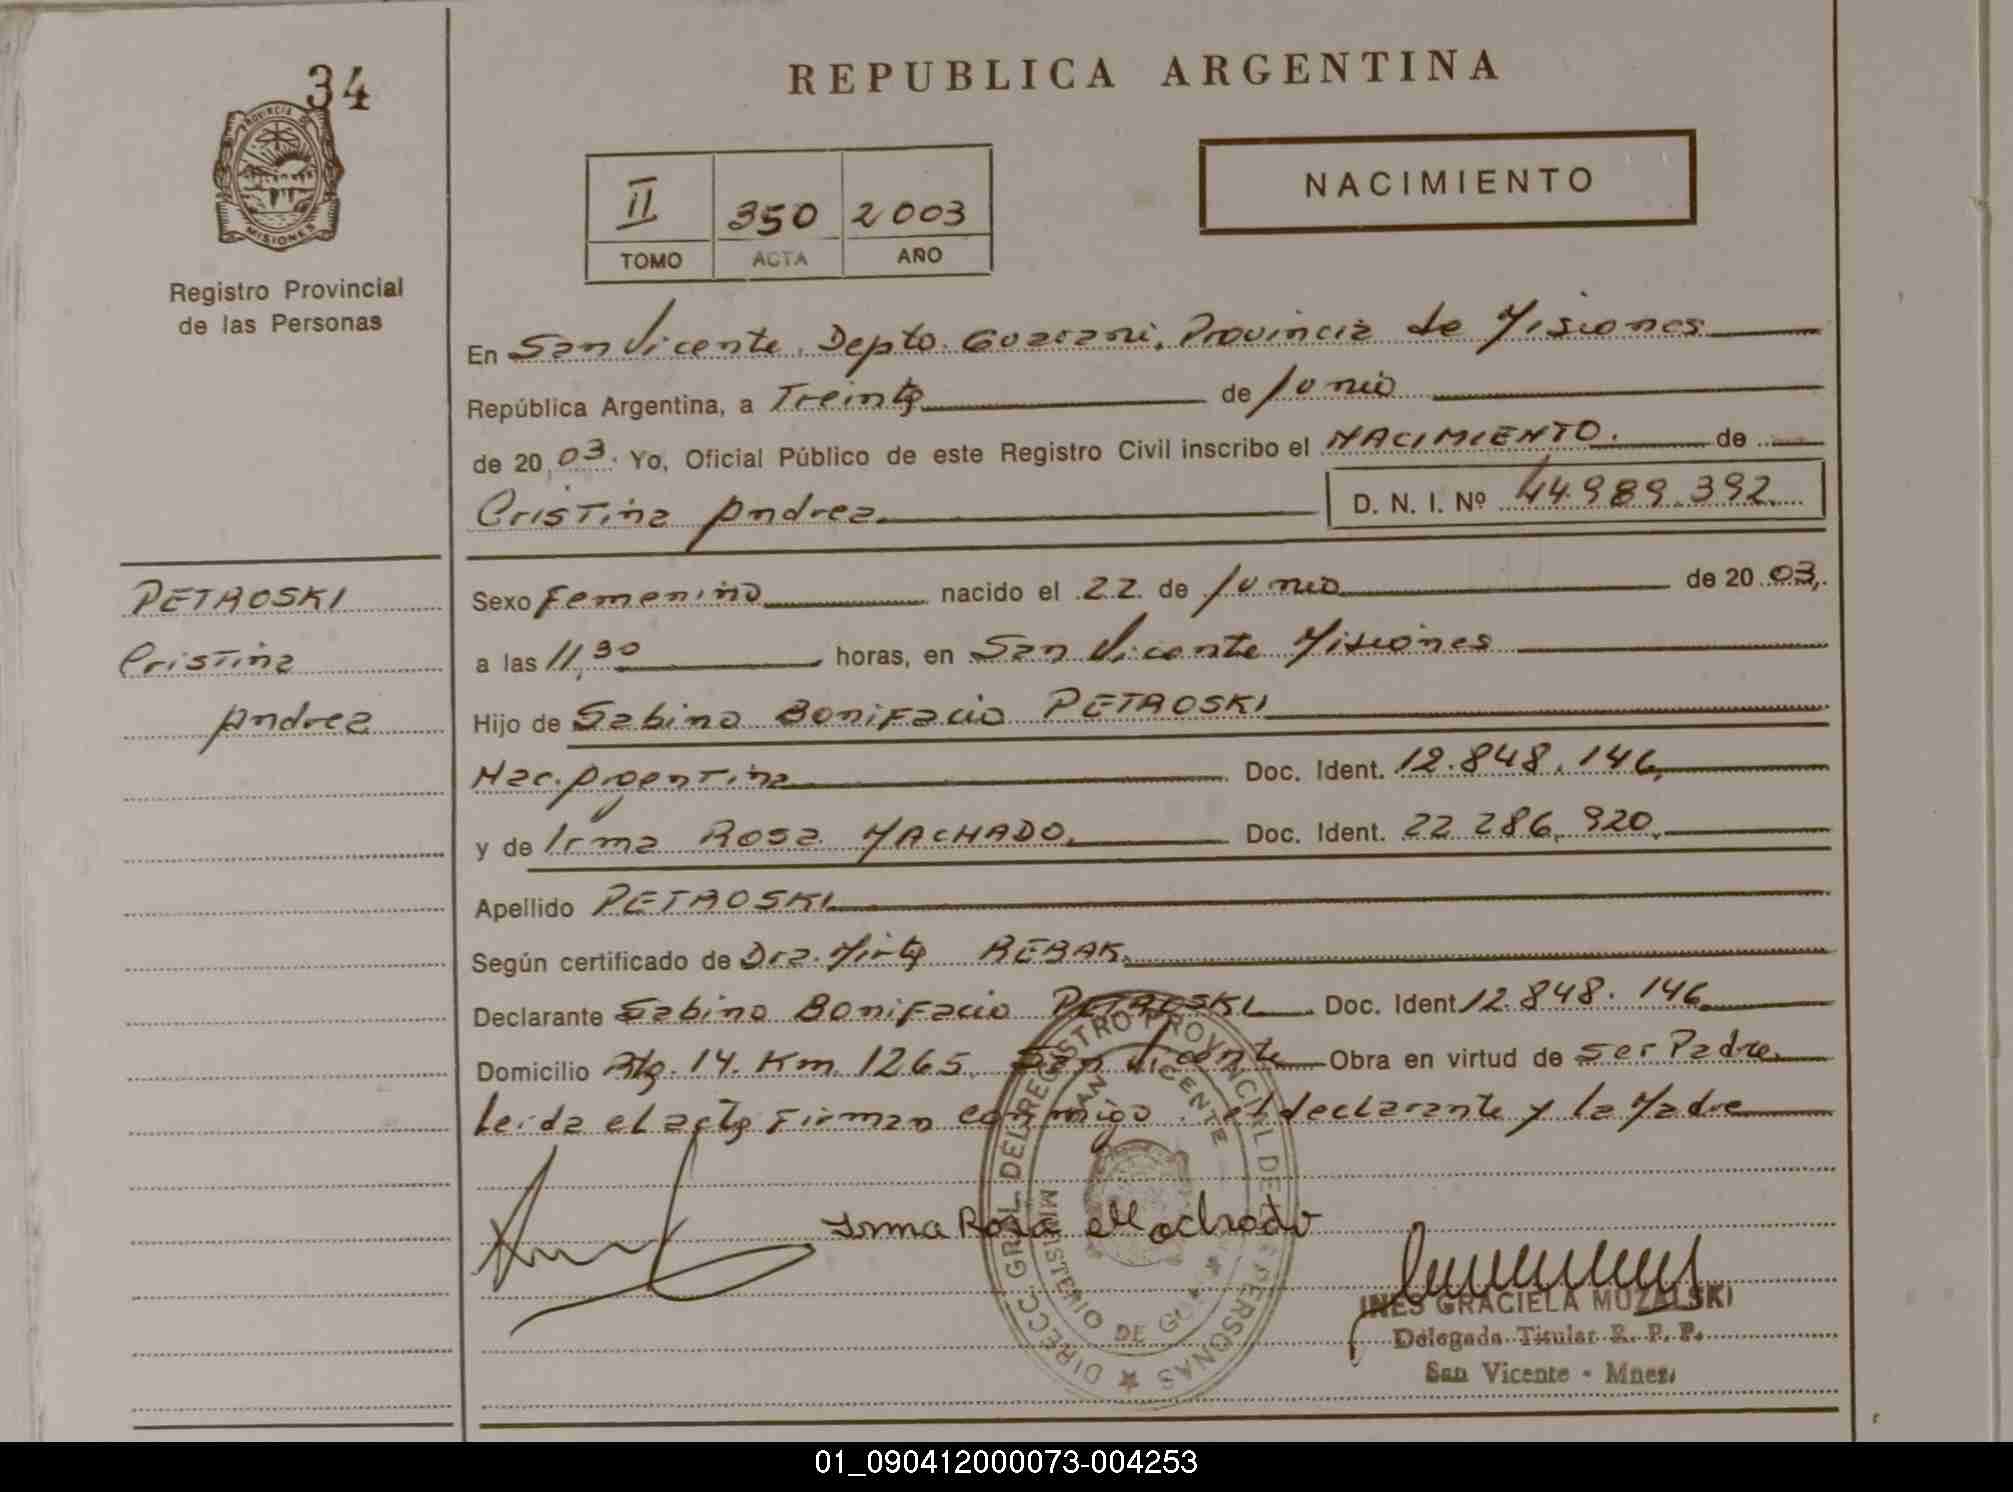 34
PROVINCIA DE
MISIONES
Registro Provincial
de las Personas
REPUBLICA ARGENTINA
II 350 2003
TOMO ACTA AÑO
NACIMIENTO
En San Vicente, Depto. Guarani, Provincia de Misiones
República Argentina, a Treinta de Junio
de 20 03. Yo, Oficial Público de este Registro Civil inscribo el NACIMIENTO. de
Cristina Andrea D. N. I. Nº 44.989.392
PETROSKI
Cristina
Andrea
Sexo Femenino nacido el 22 de Junio de 20 03,
a las 11,30 horas, en San Vicente Misiones
Hijo de Sabino Bonifacio PETROSKI
Nac. Argentina Doc. Ident. 12.848.146,
y de Irma Rosa MACHADO, Doc. Ident. 22 286, 920,
Apellido PETROSKI
Según certificado de Dra. Mirta REBAK,
Declarante Sabino Bonifacio PETROSKI Doc. Ident 12.848.146
Domicilio Rta. 14. Km. 1265, San Vicente Obra en virtud de ser Padre,
Leida el acta Firman conmigo, el declarante y la Madre
Irma Rosa Machado
DIRECC. GRAL. DEL REGISTRO PROVINCIAL DE LAS PERSONAS
SAN VICENTE
MINISTERIO DE
INES GRACIELA MUZALSKI
Delegada Titular R. P. P.
San Vicente - Mnes.
01_090412000073-004253